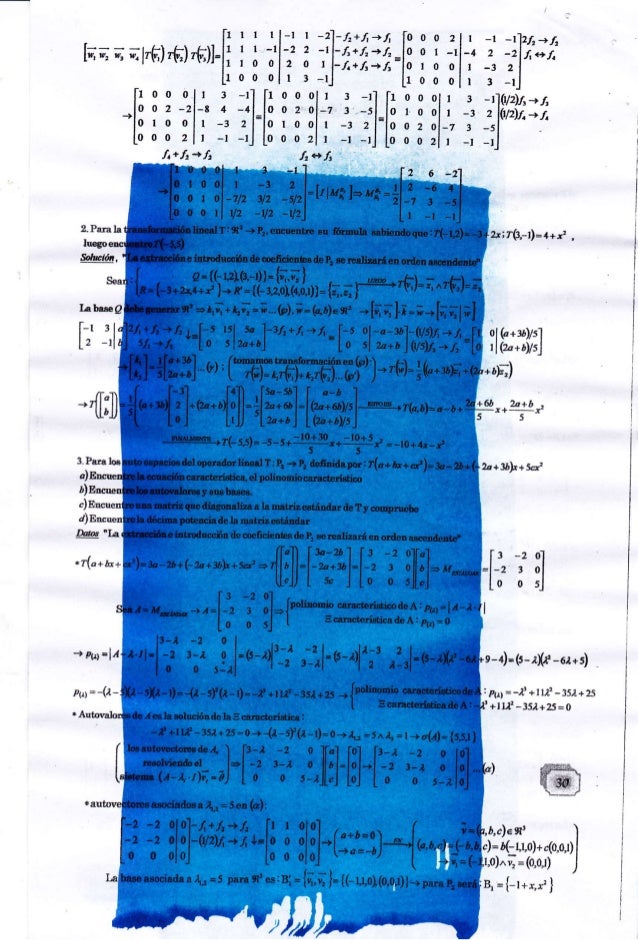 [w₁ w₂ w₃ w₄ | T(v₁) T(v₂) T(v₃)] = [1 1 1 1 | -1 1 -2; 1 1 1 -1 | -2 2 -1; 1 1 0 0 | 2 0 1; 1 0 0 0 | 1 3 -1] -f₂+f₁→f₁ -f₃+f₂→f₂ -f₄+f₃→f₃ = [0 0 0 2 | 1 -1 -1; 0 0 1 -1 | -4 2 -2; 0 1 0 0 | 1 -3 2; 1 0 0 0 | 1 3 -1] 2f₂→f₂ f₁↔f₄
→ [1 0 0 0 | 1 3 -1; 0 0 2 -2 | -8 4 -4; 0 1 0 0 | 1 -3 2; 0 0 0 2 | 1 -1 -1] = [1 0 0 0 | 1 3 -1; 0 0 2 0 | -7 3 -5; 0 1 0 0 | 1 -3 2; 0 0 0 2 | 1 -1 -1] = [1 0 0 0 | 1 3 -1; 0 1 0 0 | 1 -3 2; 0 0 2 0 | -7 3 -5; 0 0 0 2 | 1 -1 -1] (1/2)f₃→f₃ (1/2)f₄→f₄
f₄+f₂→f₂ f₂↔f₃
→ [1 0 0 0 | 1 3 -1; 0 1 0 0 | 1 -3 2; 0 0 1 0 | -7/2 3/2 -5/2; 0 0 0 1 | 1/2 -1/2 -1/2] = [I | M] ⇒ M = 1/2 [2 6 -2; 2 -6 4; -7 3 -5; 1 -1 -1]
2. Para la transformación lineal T: ℜ² → P₂, encuentre su fórmula sabiendo que: T(-1,2)=-3+2x; T(3,-1)=4+x²,
luego encuentre T(-5,5)
Solución, "La extracción e introducción de coeficientes de P₂ se realizará en orden ascendente"
Sean: { Q={(-1,2),(3,-1)}={v₁,v₂} R={-3+2x,4+x²}→R'={(-3,2,0),(4,0,1)}={z₁,z₂} } LUEGO → T(v₁)=z₁ ∧ T(v₂)=z₂
La base Q debe generar ℜ² ⇒ k₁v₁+k₂v₂=w...(ρ), w=(a,b)∈ℜ² → [v₁ v₂]·k=w → [v₁ v₂|w]
[-1 3 | a; 2 -1 | b] 2f₁+f₂→f₂ 5f₁→f₁ ↓= [-5 15 | 5a; 0 5 | 2a+b] -3f₂+f₁→f₁ = [-5 0 | -a-3b; 0 5 | 2a+b] -(1/5)f₁→f₁ (1/5)f₂→f₂ = [1 0 | (a+3b)/5; 0 1 | (2a+b)/5]
→ [k₁; k₂] = 1/5 [a+3b; 2a+b] ...(γ); (tomamos transformación en (ρ): T(w)=k₁T(v₁)+k₂T(v₂)...(ρ')) → T(w)=1/5((a+3b)z₁+(2a+b)z₂)
→ T([a; b]) = 1/5 ((a+3b)[-3; 2; 0]+(2a+b)[4; 0; 1]) = 1/5 [5a-5b; 2a+6b; 2a+b] = [a-b; (2a+6b)/5; (2a+b)/5] ESTO ES → T(a,b)=a-b+(2a+6b)/5 x+(2a+b)/5 x²
FINALMENTE → T(-5,5)=-5-5+(-10+30)/5 x+(-10+5)/5 x²=-10+4x-x²
3. Para los auto espacios del operador lineal T: P₂ → P₂ definida por: T(a+bx+cx²)=3a-2b+(-2a+3b)x+5cx²
a) Encuentre la ecuación característica, el polinomio característico
b) Encuentre los autovalores y sus bases.
c) Encuentre una matriz que diagonaliza a la matriz estándar de T y compruebe
d) Encuentre la décima potencia de la matriz estándar
Datos "La extracción e introducción de coeficientes de P₂ se realizará en orden ascendente"
* T(a+bx+cx²)=3a-2b+(-2a+3b)x+5cx² ⇒ T([a; b; c]) = [3a-2b; -2a+3b; 5c] = [3 -2 0; -2 3 0; 0 0 5][a; b; c] ⇒ M ESTÁNDAR = [3 -2 0; -2 3 0; 0 0 5]
Sea A = M ESTÁNDAR → A = [3 -2 0; -2 3 0; 0 0 5] ⇒ { polinomio característico de A: p(λ)=|A-λ·I| Ξ característica de A: p(λ)=0
→ p(λ)=|A-λ·I|= |3-λ -2 0; -2 3-λ 0; 0 0 5-λ| =(5-λ)|3-λ -2; -2 3-λ|=(5-λ)|λ-3 2; 2 λ-3|=(5-λ)(λ²-6λ+9-4)=(5-λ)(λ²-6λ+5)
p(λ)=-(λ-5)(λ-5)(λ-1)=-(λ-5)²(λ-1)=-λ³+11λ²-35λ+25 → { polinomio característico de A: p(λ)=-λ³+11λ²-35λ+25 Ξ característica de A: -λ³+11λ²-35λ+25=0
* Autovalores de A es la solución de la Ξ característica:
-λ³+11λ²-35λ+25=0 → -(λ-5)²(λ-1)=0 → λ₁,₂=5 ∧ λ₃=1 → σ(A)={5,5,1}
( los autovectores de A, resolviendo el sistema (A-λᵢ·I)vᵢ=θ ) [3-λ -2 0; -2 3-λ 0; 0 0 5-λ][a; b; c]=[0; 0; 0] → [3-λ -2 0 | 0; -2 3-λ 0 | 0; 0 0 5-λ | 0]...(α)
30
* autovectores asociados a λ₁,₂=5 en (α):
[-2 -2 0 | 0; -2 -2 0 | 0; 0 0 0 | 0] -f₁+f₂→f₂ -(1/2)f₁→f₁ ↓= [1 1 0 | 0; 0 0 0 | 0; 0 0 0 | 0] → (a+b=0 → a=-b) EN → ( v=(a,b,c)∈ℜ³ (a,b,c)=(-b,b,c)=b(-1,1,0)+c(0,0,1) → v₁=(-1,1,0) ∧ v₂=(0,0,1) )
La base asociada a λ₁,₂=5 para ℜ³ es: B'₁={v₁,v₂}={(-1,1,0),(0,0,1)} → para P₂ será: B₁={-1+x,x²}